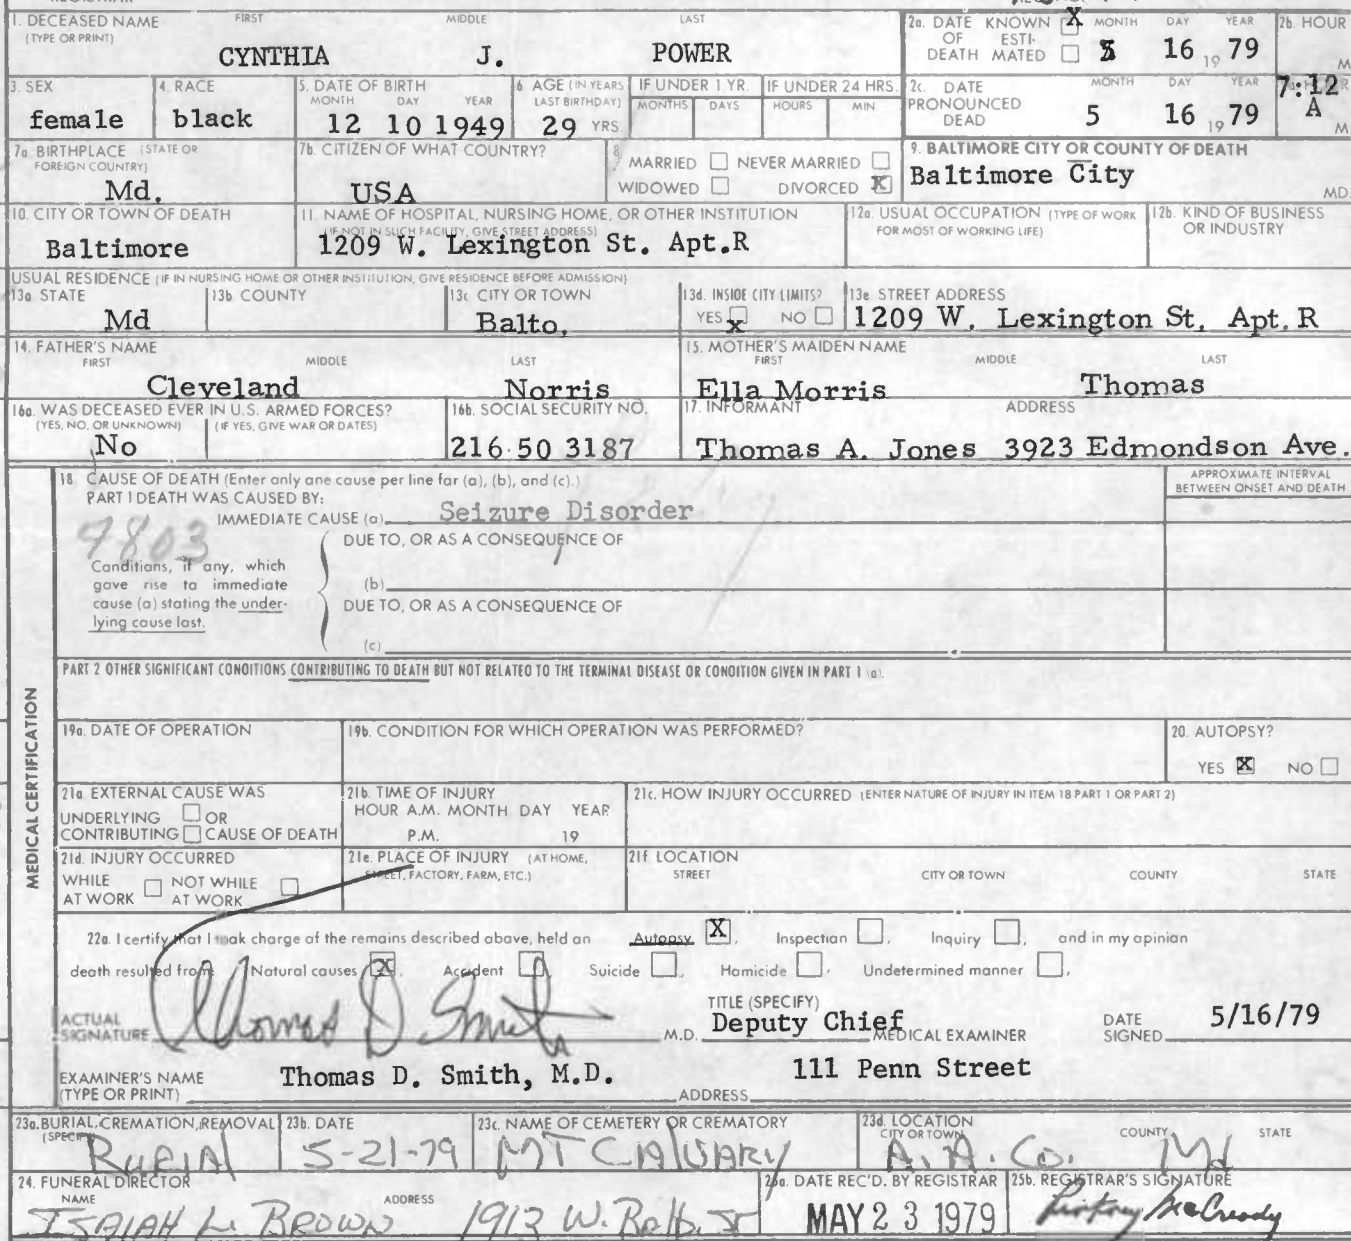 1. DECEASED NAME (TYPE OR PRINT) FIRST MIDDLE LAST
CYNTHIA J. POWER
2a. DATE OF DEATH KNOWN X ESTIMATED MONTH DAY YEAR
5 16 19 79
2b. HOUR M
3. SEX
female
4. RACE
black
5. DATE OF BIRTH MONTH DAY YEAR
12 10 1949
6 AGE (IN YEARS LAST BIRTHDAY)
29 YRS.
IF UNDER 1 YR. MONTHS DAYS
IF UNDER 24 HRS. HOURS MIN
2c. DATE PRONOUNCED DEAD MONTH DAY YEAR
5 16 19 79
7:12 A M
7a BIRTHPLACE (STATE OR FOREIGN COUNTRY)
Md.
7b. CITIZEN OF WHAT COUNTRY?
USA
8 MARRIED NEVER MARRIED
WIDOWED DIVORCED X
9. BALTIMORE CITY OR COUNTY OF DEATH
Baltimore City MD.
10. CITY OR TOWN OF DEATH
Baltimore
11. NAME OF HOSPITAL, NURSING HOME, OR OTHER INSTITUTION
(IF NOT IN SUCH FACILITY, GIVE STREET ADDRESS)
1209 W. Lexington St. Apt.R
12a. USUAL OCCUPATION (TYPE OF WORK FOR MOST OF WORKING LIFE)
12b. KIND OF BUSINESS OR INDUSTRY
USUAL RESIDENCE (IF IN NURSING HOME OR OTHER INSTITUTION, GIVE RESIDENCE BEFORE ADMISSION)
13a STATE
Md
13b COUNTY
13c CITY OR TOWN
Balto.
13d. INSIDE CITY LIMITS?
YES X NO
13e STREET ADDRESS
1209 W. Lexington St. Apt. R
14. FATHER'S NAME FIRST MIDDLE LAST
Cleveland Norris
15. MOTHER'S MAIDEN NAME FIRST MIDDLE LAST
Ella Morris Thomas
16a. WAS DECEASED EVER IN U.S. ARMED FORCES?
(YES, NO, OR UNKNOWN) (IF YES, GIVE WAR OR DATES)
No
16b. SOCIAL SECURITY NO.
216 50 3187
17. INFORMANT ADDRESS
Thomas A. Jones 3923 Edmondson Ave.
MEDICAL CERTIFICATION
18 CAUSE OF DEATH (Enter only one cause per line for (a), (b), and (c).)
APPROXIMATE INTERVAL BETWEEN ONSET AND DEATH
PART 1 DEATH WAS CAUSED BY:
IMMEDIATE CAUSE (a) Seizure Disorder
7803
DUE TO, OR AS A CONSEQUENCE OF
Conditions, if any, which
gave rise to immediate
cause (a) stating the under-
lying cause last.
(b)
DUE TO, OR AS A CONSEQUENCE OF
(c)
PART 2 OTHER SIGNIFICANT CONDITIONS CONTRIBUTING TO DEATH BUT NOT RELATED TO THE TERMINAL DISEASE OR CONDITION GIVEN IN PART 1 (a).
19a. DATE OF OPERATION
19b. CONDITION FOR WHICH OPERATION WAS PERFORMED?
20. AUTOPSY?
YES X NO
21a. EXTERNAL CAUSE WAS
UNDERLYING OR
CONTRIBUTING CAUSE OF DEATH
21b. TIME OF INJURY
HOUR A.M. MONTH DAY YEAR
P.M. 19
21c. HOW INJURY OCCURRED (ENTER NATURE OF INJURY IN ITEM 18 PART 1 OR PART 2)
21d. INJURY OCCURRED
WHILE AT WORK NOT WHILE AT WORK
21e. PLACE OF INJURY (AT HOME, STREET, FACTORY, FARM, ETC.)
21f LOCATION STREET CITY OR TOWN COUNTY STATE
22a. I certify that I took charge of the remains described above, held an Autopsy X, Inspection, Inquiry, and in my opinion
death resulted from Natural causes X, Accident, Suicide, Homicide, Undetermined manner,
ACTUAL SIGNATURE Thomas D. Smith M.D.
TITLE (SPECIFY)
Deputy Chief MEDICAL EXAMINER
DATE SIGNED 5/16/79
EXAMINER'S NAME (TYPE OR PRINT) Thomas D. Smith, M.D.
ADDRESS 111 Penn Street
23a. BURIAL, CREMATION, REMOVAL (SPECIFY)
BURIAL
23b. DATE
5-21-79
23c. NAME OF CEMETERY OR CREMATORY
MT CALVARY
23d. LOCATION CITY OR TOWN COUNTY STATE
A.A. Co. Md
24. FUNERAL DIRECTOR NAME ADDRESS
ISAIAH L. BROWN 1913 W. Balto. St
25a. DATE REC'D. BY REGISTRAR
MAY 23 1979
25b. REGISTRAR'S SIGNATURE
McCready